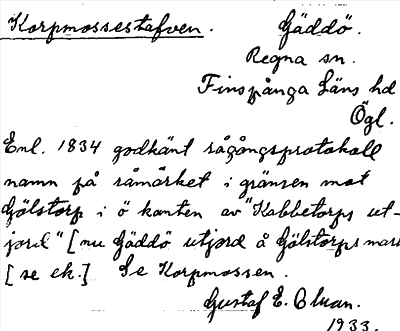 Korpmossestafven. Gäddö.
Regna sn.
Finspånga Läns hd
Ögl.
Enl. 1834 godkänt rågångsprotokoll
namn på råmärket i gränsen mot
Gölstorp i ö kanten av "Kabbetorps ut-
jord" [nu Gäddö utjord å Gölstorps mark
[se ek.] Se Korpmossen.
Gustaf E. Oluan.
1933.